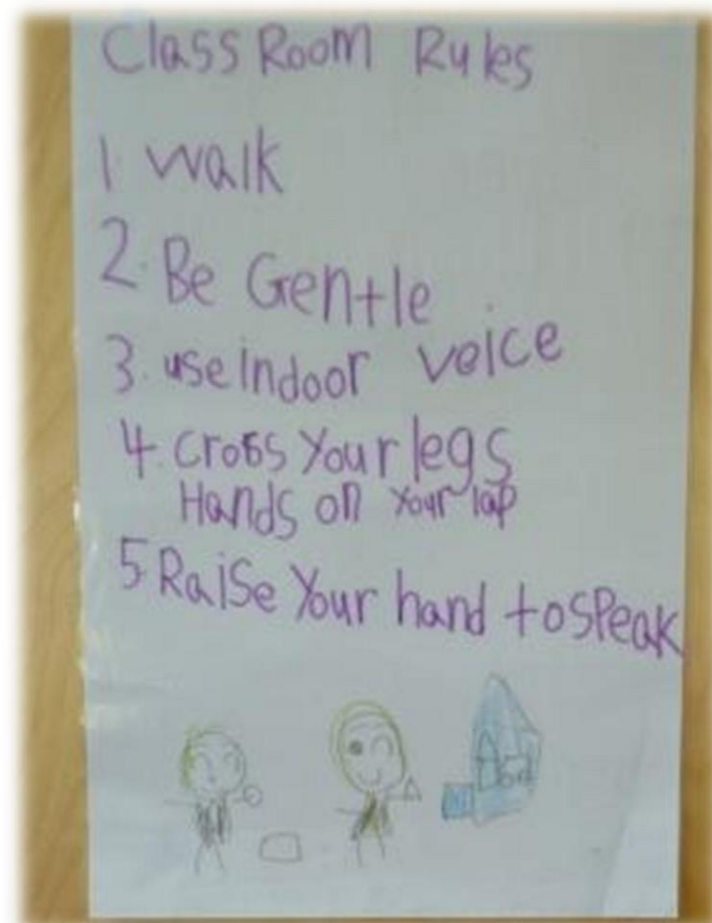 Class Room Rules
1 walk
2. Be Gentle
3. use indoor voice
4. cross Your legs
Hands on Your lap
5 Raise Your hand to speak